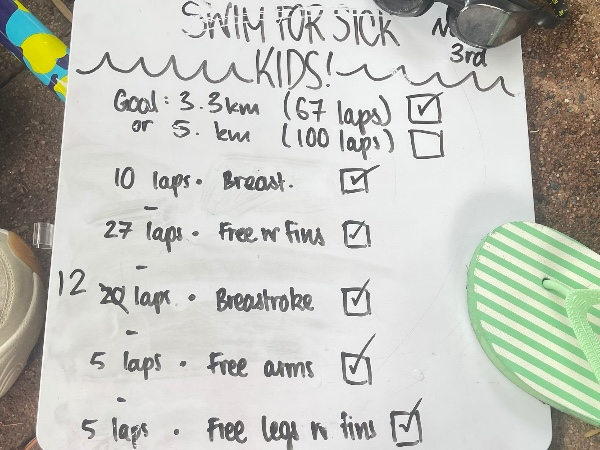 SWIM FOR SICK
KIDS!
3rd
Goal: 3.3km (67 laps) ☑
or 5. km (100 laps) ☐
10 laps. Breast. ☑
27 laps. Free n fins ☑
12 20 laps. Breastroke ☑
5 laps. Free arms ☑
5 laps. Free legs n fins ☑